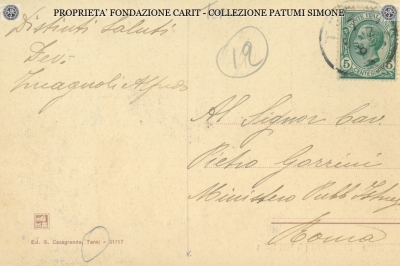 PROPRIETA' FONDAZIONE CARIT - COLLEZIONE PATUMI SIMONE
Distinti Saluti
Dev.
Alfredo
12
5
Al Signor Cav.
Pietro Gorrini
Ministero Pubb. Istruz
Roma
Ed. G. Casagrande, Terni - 31717